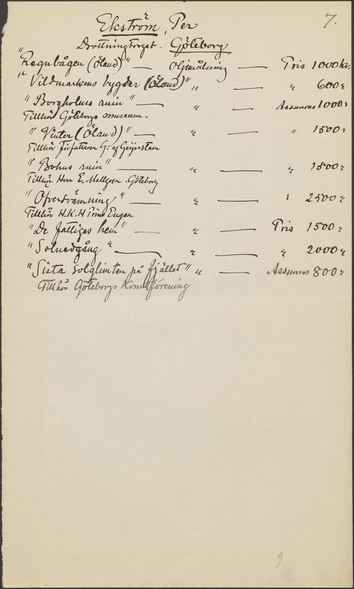 7.
Ekström, Per
Drottningtorget. Göteborg
"Regnbågen (Öland)" — Oljmålning — Pris 1000 kr.
"Vildmarkens bygder (Öland)" „ — „ 600:
"Borgholms ruin" — „ — Assurans 1000:
Tillhör Göteborgs museum.
"Vinter (Öland)" — „ — „ 1500:
Tillhör
"Bohus ruin" — „ — „ 1500:
Tillhör Herr E. Mellgren. Göteborg
"Öfversvämning" — „ — „ 2500:
Tillhör H.K.H Prins Eugen
"De fattiges hem" — „ — Pris 1500:
"Solnedgång" — „ — „ 2000:
"Sista solglimten på fjället" „ — Assurans 800:
Tillhör Göteborgs Konstförening
9